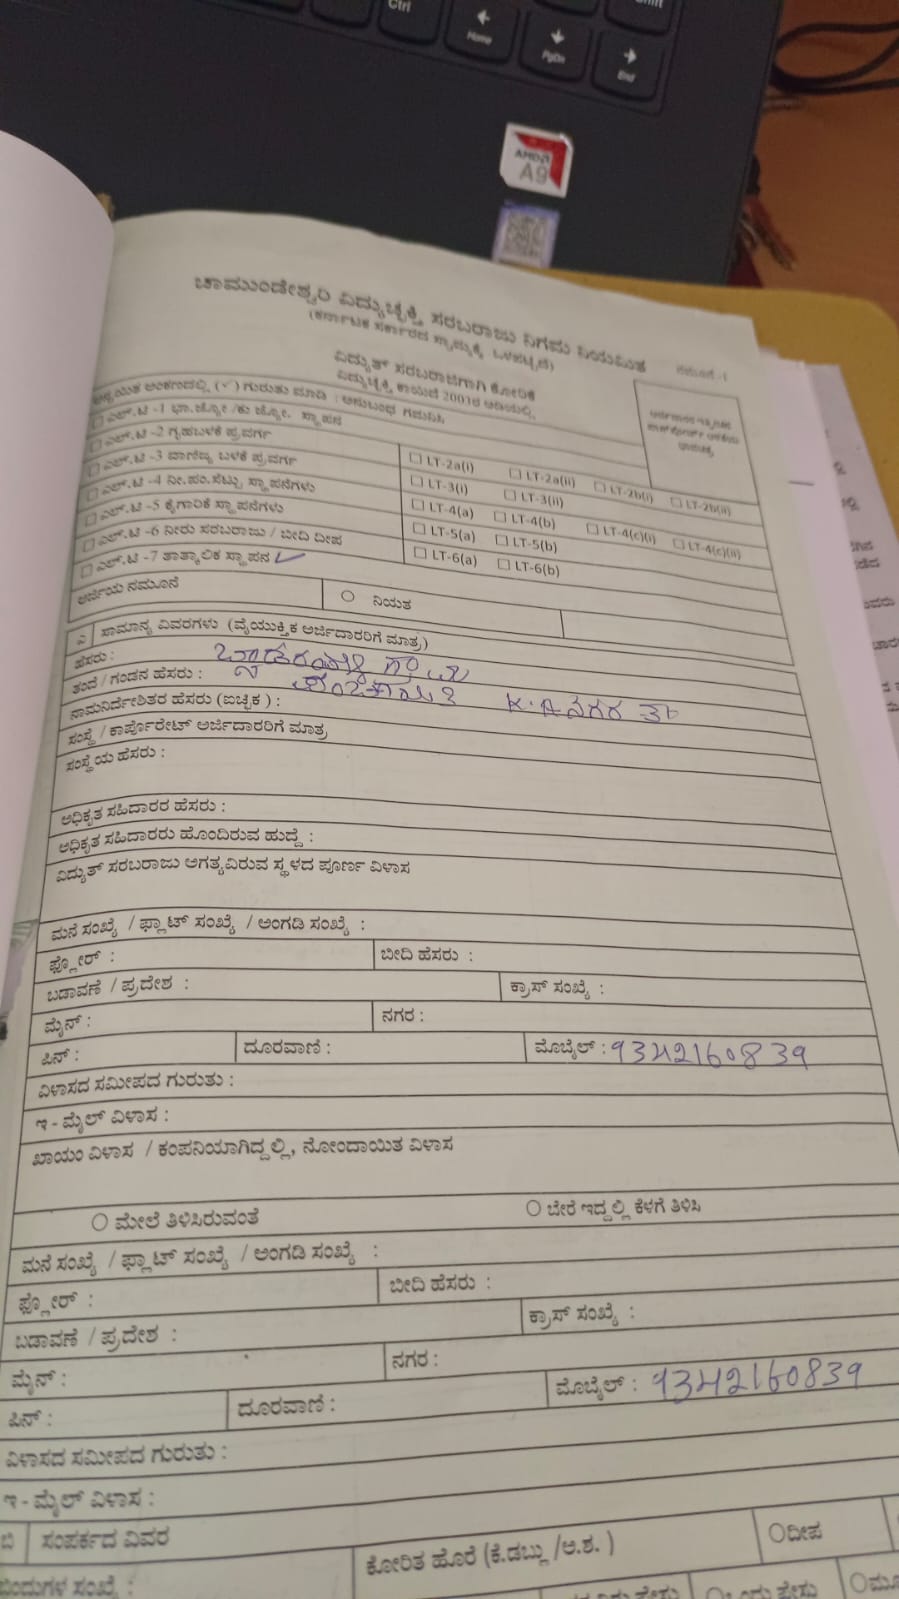 Ctrl
Home
PgDn
End
AMD
A9
ಚಾಮುಂಡೇಶ್ವರಿ ವಿದ್ಯುಚ್ಛಕ್ತಿ ಸರಬರಾಜು ನಿಗಮ ನಿಯಮಿತ
(ಕರ್ನಾಟಕ ಸರ್ಕಾರದ ಸ್ವಾಮ್ಯಕ್ಕೆ ಒಳಪಟ್ಟಿದೆ)
ನಮೂನೆ -1
ವಿದ್ಯುತ್ ಸರಬರಾಜಿಗಾಗಿ ಕೋರಿಕೆ
ವಿದ್ಯುಚ್ಛಕ್ತಿ ಕಾಯಿದೆ 2003ರ ಅಡಿಯಲ್ಲಿ
ಅನ್ವಯಿತ ಅಂಕಣದಲ್ಲಿ (✓) ಗುರುತು ಮಾಡಿ : ಅನುಬಂಧ ಗಮನಿಸಿ
☐ ಎಲ್.ಟಿ -1 ಭಾ.ಜ್ಯೋ /ಕು ಜ್ಯೋ. ಸ್ಥಾಪನ
☐ ಎಲ್.ಟಿ -2 ಗೃಹಬಳಕೆ ಪ್ರವರ್ಗ ☐ LT-2a(i) ☐ LT-2a(ii) ☐ LT-2b(i) ☐ LT-2b(ii)
☐ ಎಲ್.ಟಿ -3 ವಾಣಿಜ್ಯ ಬಳಕೆ ಪ್ರವರ್ಗ ☐ LT-3(i) ☐ LT-3(ii)
☐ ಎಲ್.ಟಿ -4 ನೀ.ಪಂ.ಸೆಟ್ಟು ಸ್ಥಾಪನೆಗಳು ☐ LT-4(a) ☐ LT-4(b) ☐ LT-4(c)(i) ☐ LT-4(c)(ii)
☐ ಎಲ್.ಟಿ -5 ಕೈಗಾರಿಕೆ ಸ್ಥಾಪನೆಗಳು ☐ LT-5(a) ☐ LT-5(b)
☐ ಎಲ್.ಟಿ -6 ನೀರು ಸರಬರಾಜು / ಬೀದಿ ದೀಪ ☐ LT-6(a) ☐ LT-6(b)
☐ ಎಲ್.ಟಿ -7 ತಾತ್ಕಾಲಿಕ ಸ್ಥಾಪನ ✓
ಅರ್ಜಿಯ ನಮೂನೆ ○ ನಿಯತ
ಎ ಸಾಮಾನ್ಯ ವಿವರಗಳು (ವೈಯುಕ್ತಿಕ ಅರ್ಜಿದಾರರಿಗೆ ಮಾತ್ರ)
ಹೆಸರು :
ತಂದೆ / ಗಂಡನ ಹೆಸರು : ಪಂಚಾಯಿತಿ
ನಾಮನಿರ್ದೇಶಿತರ ಹೆಸರು (ಐಚ್ಛಿಕ) : ನಗರ
ಸಂಸ್ಥೆ / ಕಾರ್ಪೊರೇಟ್ ಅರ್ಜಿದಾರರಿಗೆ ಮಾತ್ರ
ಸಂಸ್ಥೆಯ ಹೆಸರು :
ಅಧಿಕೃತ ಸಹಿದಾರರ ಹೆಸರು :
ಅಧಿಕೃತ ಸಹಿದಾರರು ಹೊಂದಿರುವ ಹುದ್ದೆ :
ವಿದ್ಯುತ್ ಸರಬರಾಜು ಅಗತ್ಯವಿರುವ ಸ್ಥಳದ ಪೂರ್ಣ ವಿಳಾಸ
ಮನೆ ಸಂಖ್ಯೆ / ಫ್ಲಾಟ್ ಸಂಖ್ಯೆ / ಅಂಗಡಿ ಸಂಖ್ಯೆ :
ಫ್ಲೋರ್ : ಬೀದಿ ಹೆಸರು :
ಬಡಾವಣೆ / ಪ್ರದೇಶ : ಕ್ರಾಸ್ ಸಂಖ್ಯೆ :
ಮೈನ್ : ನಗರ :
ಪಿನ್ : ದೂರವಾಣಿ : ಮೊಬೈಲ್ : 9342160839
ವಿಳಾಸದ ಸಮೀಪದ ಗುರುತು :
ಇ - ಮೈಲ್ ವಿಳಾಸ :
ಖಾಯಂ ವಿಳಾಸ / ಕಂಪನಿಯಾಗಿದ್ದಲ್ಲಿ, ನೋಂದಾಯಿತ ವಿಳಾಸ
○ ಮೇಲೆ ತಿಳಿಸಿರುವಂತೆ ○ ಬೇರೆ ಇದ್ದಲ್ಲಿ ಕೆಳಗೆ ತಿಳಿಸಿ
ಮನೆ ಸಂಖ್ಯೆ / ಫ್ಲಾಟ್ ಸಂಖ್ಯೆ / ಅಂಗಡಿ ಸಂಖ್ಯೆ :
ಫ್ಲೋರ್ : ಬೀದಿ ಹೆಸರು :
ಬಡಾವಣೆ / ಪ್ರದೇಶ : ಕ್ರಾಸ್ ಸಂಖ್ಯೆ :
ಮೈನ್ : ನಗರ :
ಪಿನ್ : ದೂರವಾಣಿ : ಮೊಬೈಲ್ : 9342160839
ವಿಳಾಸದ ಸಮೀಪದ ಗುರುತು :
ಇ - ಮೈಲ್ ವಿಳಾಸ :
ಬಿ ಸಂಪರ್ಕದ ವಿವರ
ಕೋರಿತ ಹೊರೆ (ಕೆ.ಡಬ್ಲು /ಅ.ಶ. ) ○ದೀಪ
ಬಿಂದುಗಳ ಸಂಖ್ಯೆ :